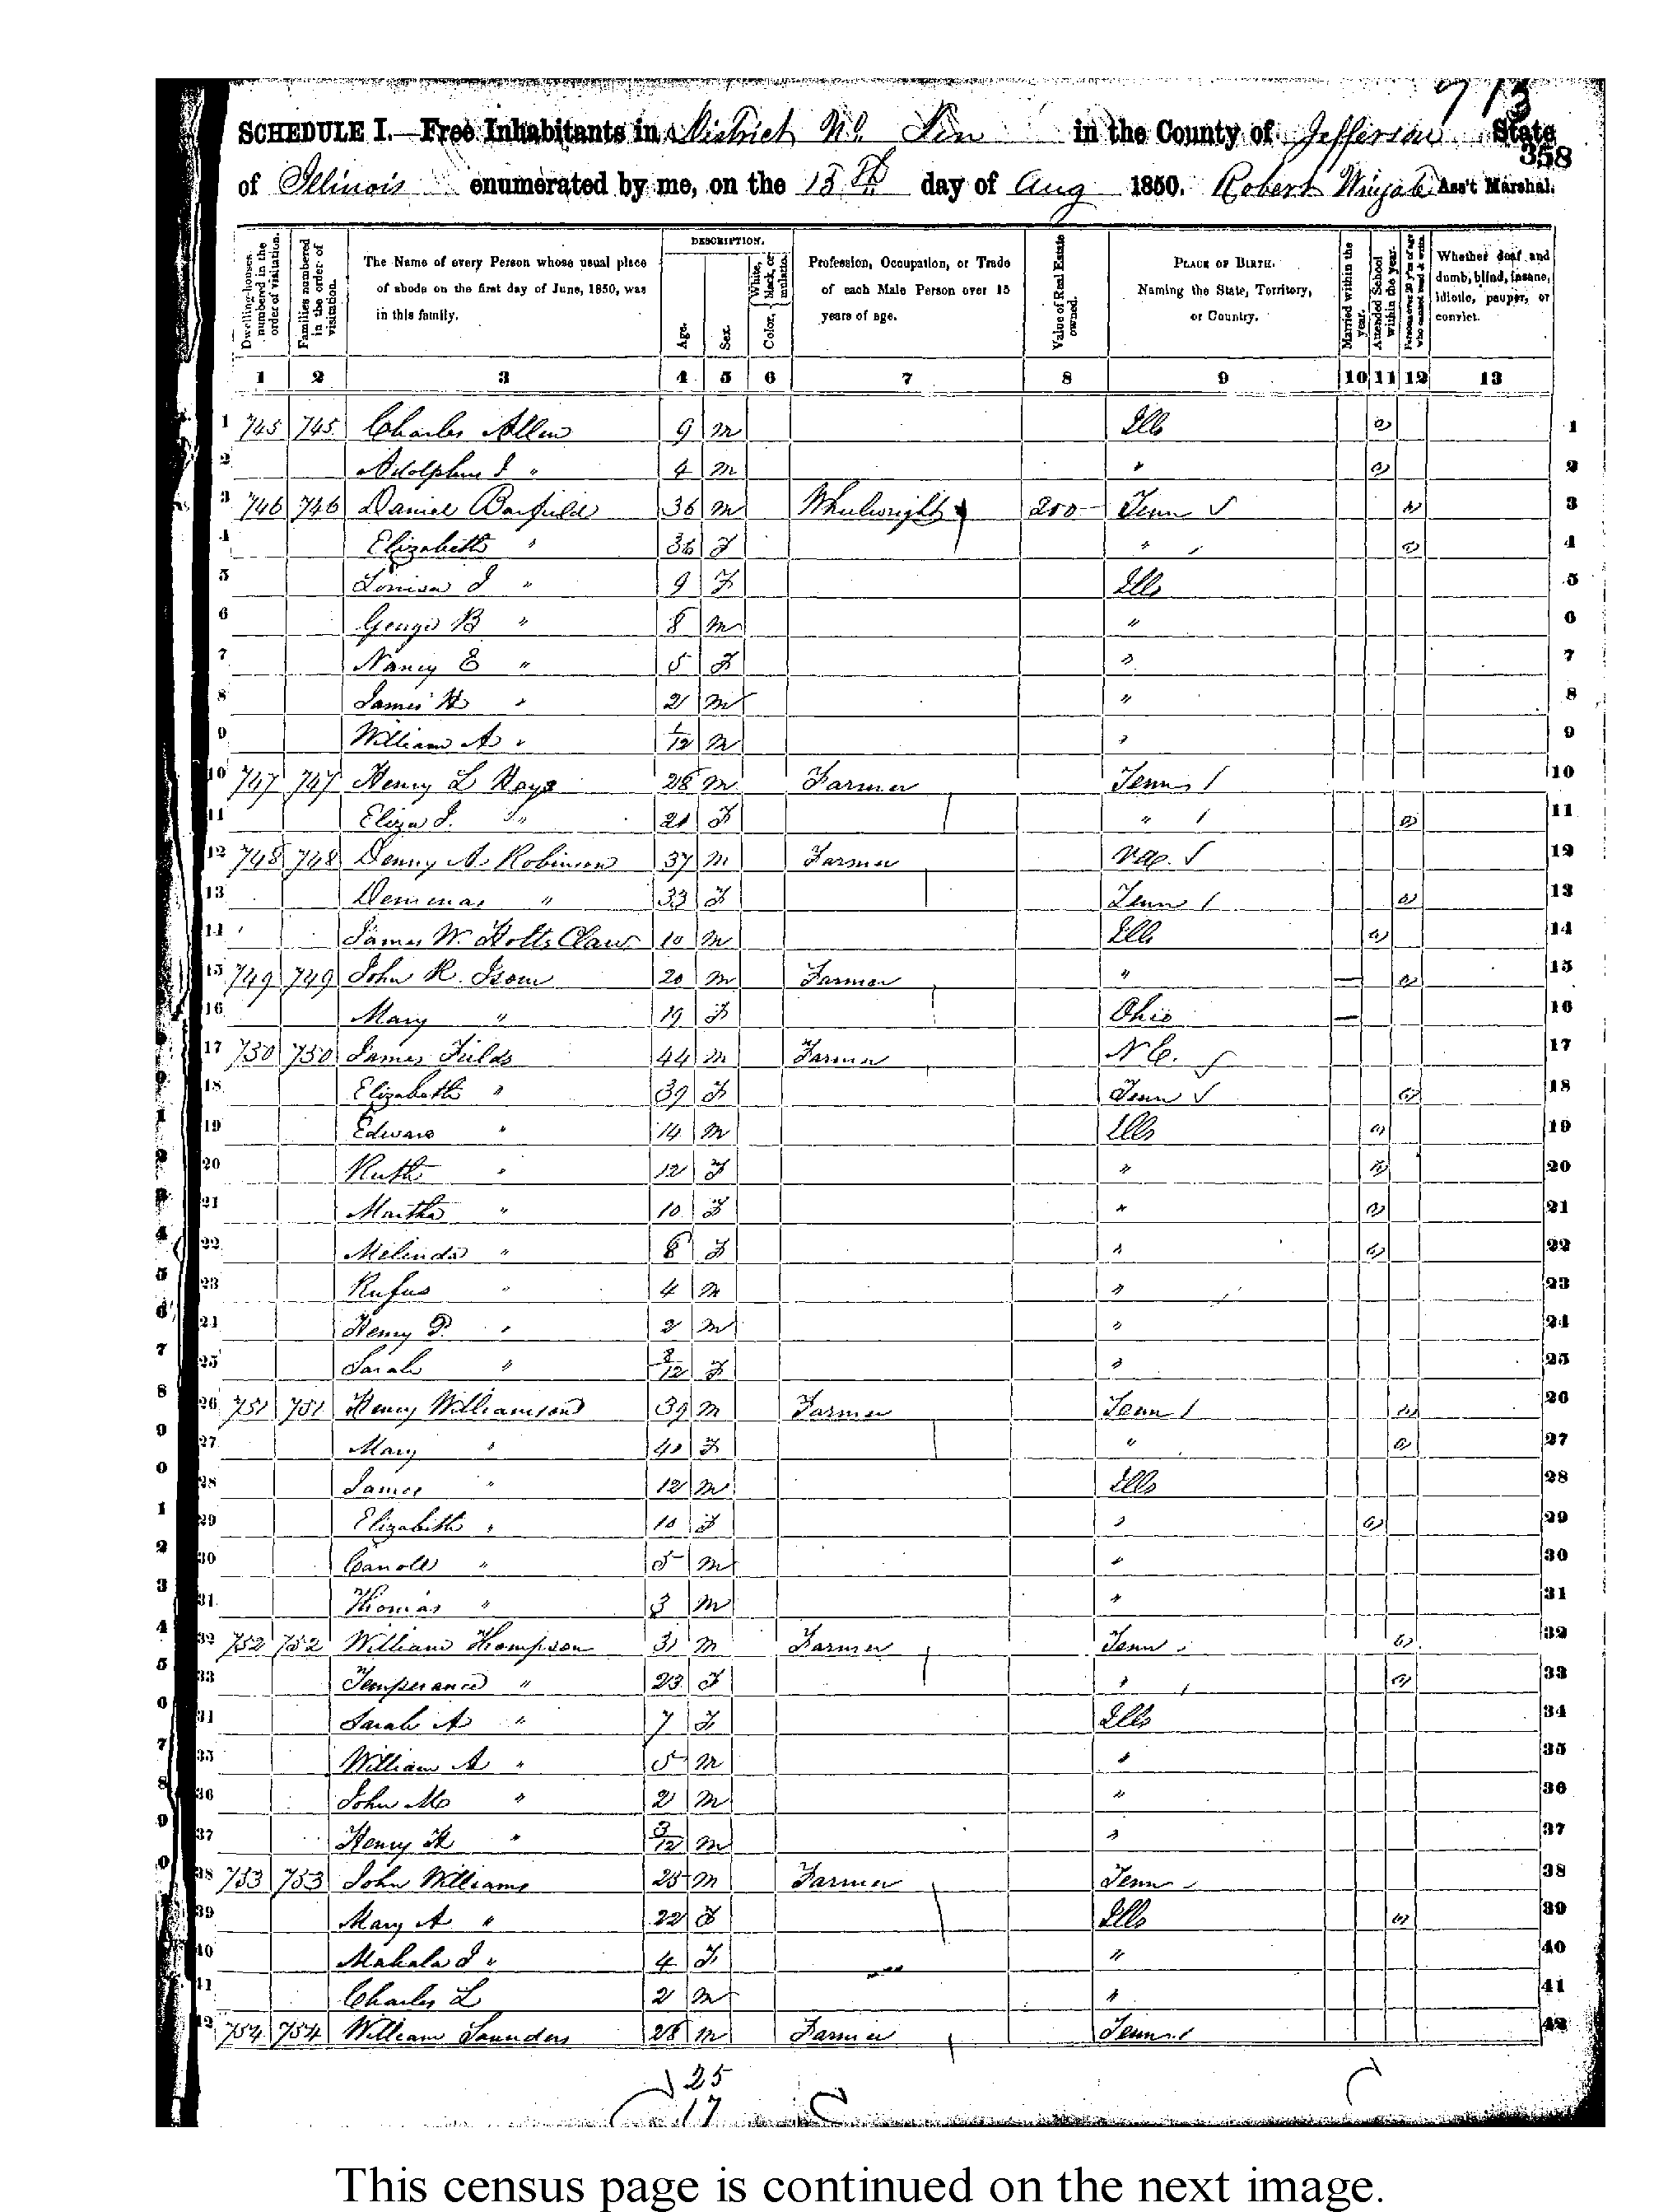 713
SCHEDULE I.—Free Inhabitants in District No. Ten in the County of Jefferson State
358
of Illinois enumerated by me, on the 15th day of Aug 1850. Robert Wingate Ass't Marshal.
Dwelling-houses numbered in the order of visitation.
Families numbered in the order of visitation.
The Name of every Person whose usual place of abode on the first day of June, 1850, was in this family.
DESCRIPTION.
Age.
Sex.
Color, White, black, or mulatto.
Profession, Occupation, or Trade of each Male Person over 15 years of age.
Value of Real Estate owned.
PLACE OF BIRTH. Naming the State, Territory, or Country.
Married within the year.
Attended School within the year.
Persons over 20 y'rs of age who cannot read & write.
Whether deaf and dumb, blind, insane, idiotic, pauper, or convict.
1 2 3 4 5 6 7 8 9 10 11 12 13
1 745 745 Charles Allen 9 m Ills 1
2 Adolphus J " 4 m " 2
3 746 746 Daniel Barfield 36 m Wheelwright 200 Tenn 3
4 Elizabeth " 36 F " 4
5 Louisa J " 9 F Ills 5
6 George B " 8 m " 6
7 Nancy E " 5 F " 7
8 James H " 2 m " 8
9 William A " 1/12 m " 9
10 747 747 Henry L Hays 28 m Farmer Tenn 10
11 Eliza J. " 21 F " 11
12 748 748 Denny A. Robinson 37 m Farmer Va. 12
13 " 33 F Tenn 13
14 James W. Holts Claw 10 m Ills 14
15 749 749 John R. Isom 20 m Farmer " 15
16 Mary " 19 F Ohio 16
17 750 750 James Fields 44 m Farmer N C. 17
18 Elizabeth " 39 F Tenn 18
19 Edward " 14 m Ills 19
20 Ruth " 12 F " 20
21 Martha " 10 F " 21
22 Melinda " 8 F " 22
23 Rufus " 4 m " 23
24 Henry P. " 2 m " 24
25 Sarah " 8/12 F " 25
26 751 751 Henry Williamson 39 m Farmer Tenn 26
27 Mary " 40 F " 27
28 James " 12 m Ills 28
29 Elizabeth " 10 F " 29
30 Caroll " 5 m " 30
31 Thomas " 3 m " 31
32 752 752 William Thompson 31 m Farmer Tenn 32
33 Temperance " 23 F " 33
34 Sarah A " 7 F Ills 34
35 William A " 5 m " 35
36 John M " 2 m " 36
37 Henry H " 3/12 m " 37
38 753 753 John Williams 25 m Farmer Tenn 38
39 Mary A " 22 F Ills 39
40 Mahala J " 4 F " 40
41 Charles L 2 m " 41
42 754 754 William Saunders 28 m Farmer Tenn 42
25
17
This census page is continued on the next image.